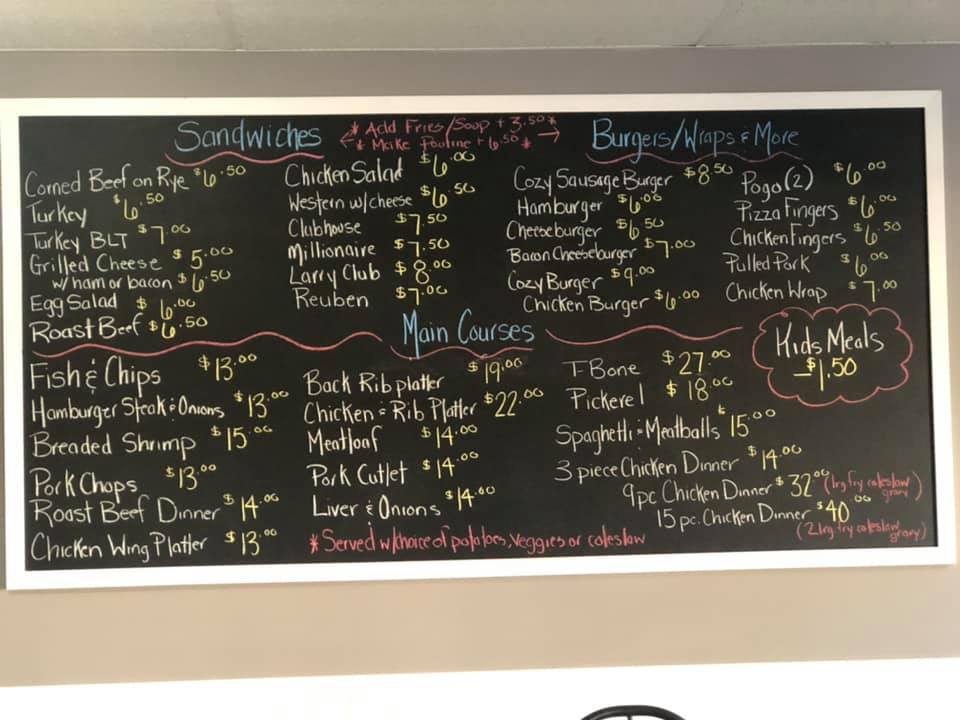 Sandwiches
* Add Fries/Soup + 3.50 *
* Make Poutine + 6.50 *
Burgers/Wraps & More
Corned Beef on Rye $6.50
Turkey $6.50
Turkey BLT $7.00
Grilled Cheese $5.00
w/ham or bacon $6.50
Egg Salad $6.00
Roast Beef $6.50
Chicken Salad $6.00
Western w/cheese $6.50
Clubhouse $7.50
Millionaire $7.50
Larry Club $8.00
Reuben $7.00
Cozy Sausage Burger $8.50
Hamburger $6.00
Cheeseburger $6.50
Bacon Cheeseburger $7.00
Cozy Burger $9.00
Chicken Burger $6.00
Pogo (2) $6.00
Pizza Fingers $6.00
Chicken Fingers $6.50
Pulled Pork $6.00
Chicken Wrap $7.00
Kids Meals
-$1.50
Main Courses
Fish & Chips $13.00
Hamburger Steak & Onions $13.00
Breaded Shrimp $15.00
Pork Chops $13.00
Roast Beef Dinner $14.00
Chicken Wing Platter $13.00
Back Rib platter $19.00
Chicken & Rib Platter $22.00
Meatloaf $14.00
Pork Cutlet $14.00
Liver & Onions $14.00
* Served w/choice of potatoes, veggies or coleslaw
T-Bone $27.00
Pickerel $18.00
Spaghetti & Meatballs $15.00
3 piece Chicken Dinner $14.00
9pc Chicken Dinner $32.00 (1 lrg fry coleslaw gravy)
15 pc. Chicken Dinner $40.00
(2 lrg fry coleslaw gravy)